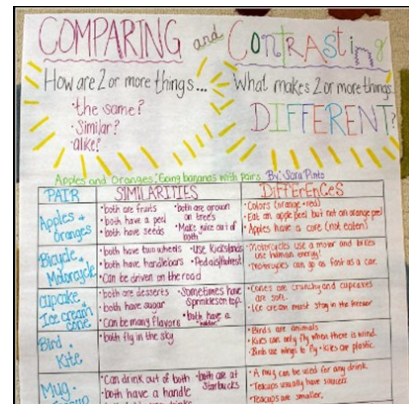 COMPARING and CONTRASTING
How are 2 or more things...
• the same?
• Similar?
• alike?
What makes 2 or more things
DIFFERENT?
Apples and Oranges: Going bananas with pairs By: Sara Pinto
PAIR
SIMILARITIES
DIFFERENCES
Apples +
Oranges
• both are fruits
• both have a peel
• both have seeds
• both are grown
on trees
• Make juice out of
both
• Colors (orange + red)
• Eat an apple peel but not an orange peel
• Apples have a core (not eaten)
Bicycle +
Motorcycle
• both have two wheels
• both have handlebars
• Can be driven on the road
• Use Kickstands
• Motorcycles use a motor and bikes
use human energy!
• Motorcycles can go as fast as a car.
Cupcake +
Ice cream
cone
• both are desserts
• both have sugar
• Can be many flavors
• Sometimes have
Sprinkles on top.
• both have a
• Cones are crunchy and cupcakes
are soft.
• Ice cream must stay in the freezer
Bird +
Kite
• both fly in the sky
• Birds are animals
• Kites can only fly when there is wind.
• Birds use wings to fly • kites are plastic.
Mug +
• Can drink out of both
• both have a handle
• both are at
Starbucks
• A mug can be used for any drink.
• Teacups usually have saucers.
• Teacups are smaller.